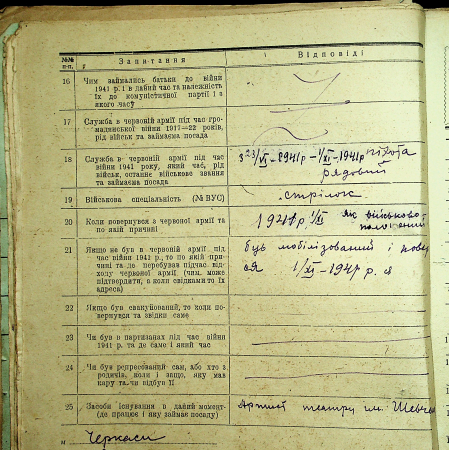 №№ п.п.
Запитання
Відповіді
16 Чим займались батьки до війни
1941 р. і в даний час та належність
їх до комуністичної партії і з
якого часу
17 Служба в червоній армії під час гро-
мадянської війни 1917—22 років,
рід військ та займаєма посада
18 Служба в червоній армії під час
війни 1941 року, який час, рід
військ, останнє військове звання
та займаєма посада
з 23/VI - 1941 р - 1/XI - 1941 р піхота
рядовий
19 Військова спеціальність (№ ВУС)
стрілок
20 Коли повернувся з червоної армії та
по якій причині
1941 р. 1/XI як військово-
полонений
21 Якщо не був в червоній армії під
час війни 1941 р., то по якій при-
чині та де перебував підчас від-
ходу червоної армії (чим може
підтвердити, а коли свідками то їх
адреса)
був мобілізований і повер
ся 1/XI - 1941 р.
22 Якщо був евакуйований, то коли по-
вернувся та звідки саме
23 Чи був в партизанах під час війни
1941 р. та де саме і який час
24 Чи був репресований сам, або хто з
родичів, коли і защо, яку мав
кару та чи відбув її
25 Засоби існування в даний момент-
(де працює і яку займає посаду)
Артист театру ім. Шевч
м Черкаси